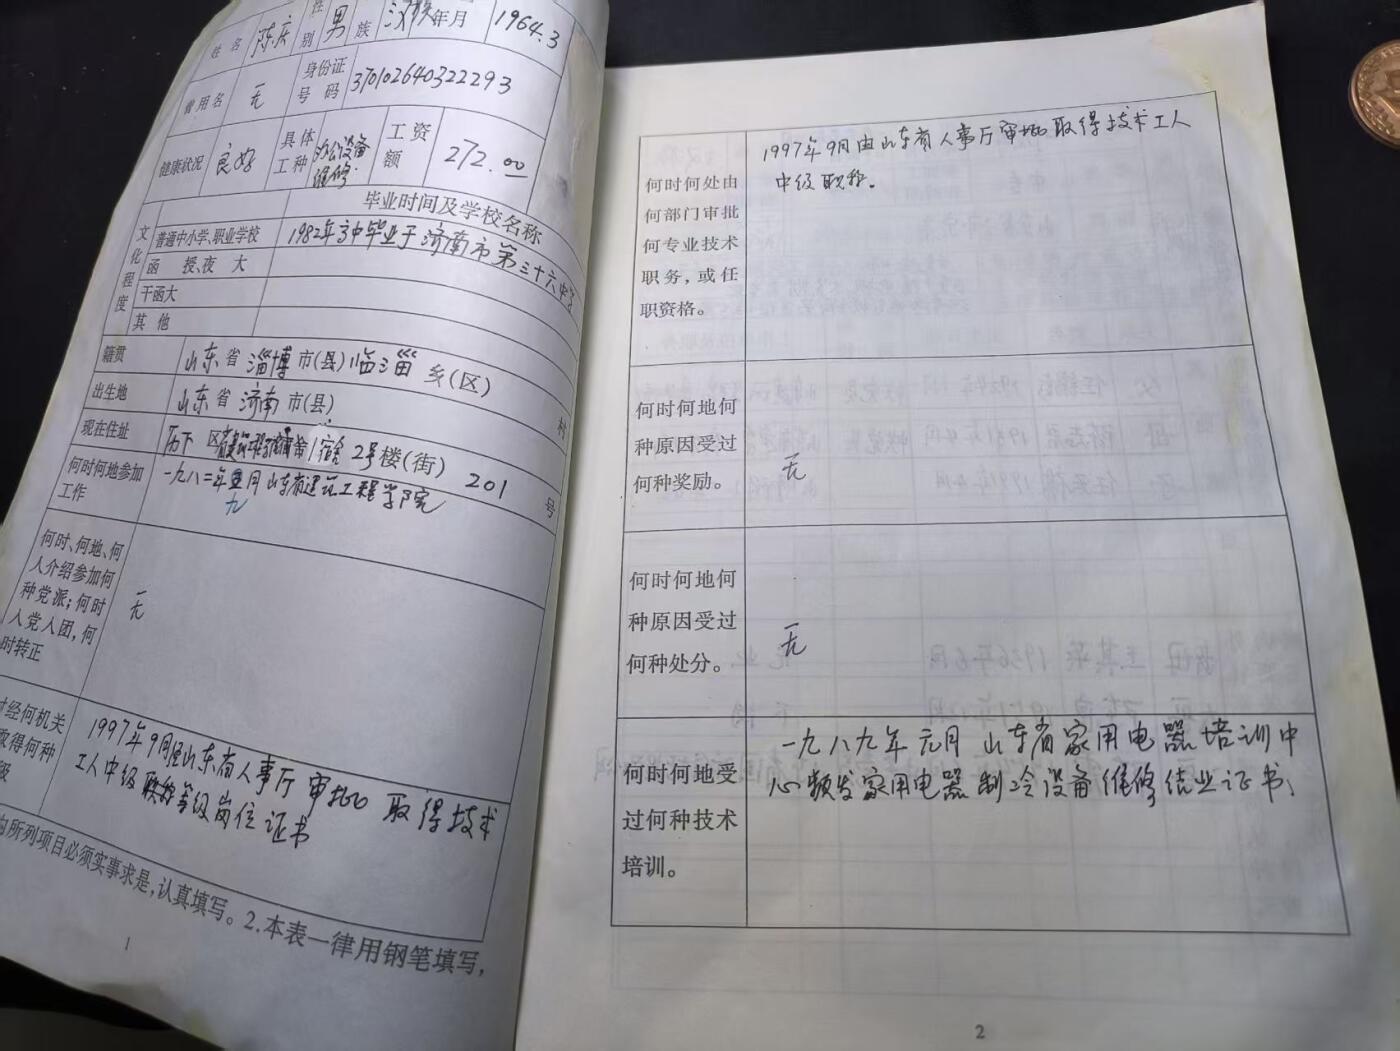 姓 名 陈庆 性别 男 族 汉族 年月 1964.3
曾用名 无 身份证号码 370102640322293
健康状况 良好 具体工种 办公设备维修 工资额 272.00
文化程度 毕业时间及学校名称
普通中小学、职业学校 1982年高中毕业于济南市第三十六中学
函 授、夜 大
干函大
其 他
籍贯 山东省淄博市(县)临淄乡(区) 村
出生地 山东省济南市(县)
现在住址 历下区 宿舍2号楼(街)201号
何时何地参加工作 一九八二年 九月山东省建筑工程学院
何时、何地、何
人介绍参加何
种党派;何时
入党入团,何
时转正
无
经何机关
取得何种
级
1997年9月经山东省人事厅审批取得技术
工人中级职称等级岗位证书
所列项目必须实事求是,认真填写。2.本表一律用钢笔填写,
1
何时何处由
何部门审批
何专业技术
职务,或任
职资格。
1997年9月由山东省人事厅审批取得技术工人
中级职称。
何时何地何
种原因受过
何种奖励。
无
何时何地何
种原因受过
何种处分。
无
何时何地受
过何种技术
培训。
一九八九年元月山东省家用电器培训中
心颁发家用电器制冷设备维修结业证书;
2